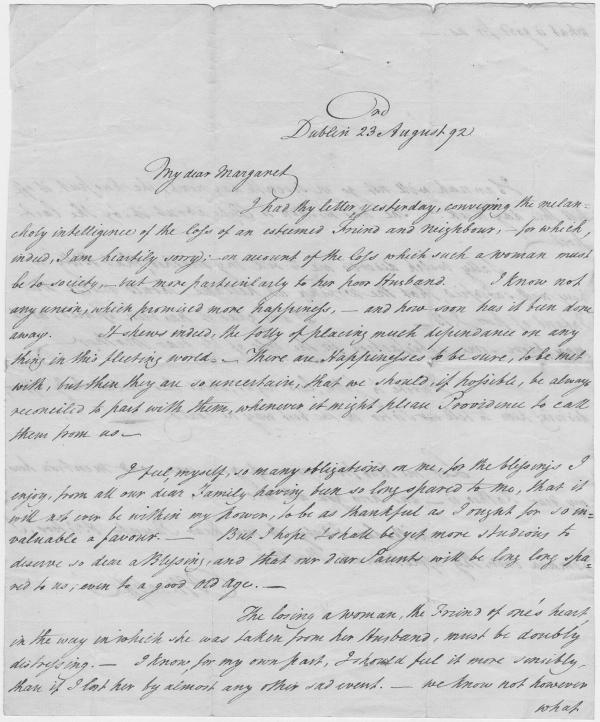 Dublin 23rd August 92
My dear Margaret
I had thy letter yesterday, conveying the melan-
choly intelligence of the loss of an esteemed Friend and neighbour, – for which,
indeed, I am heartily sorry; – on account of the loss which such a woman must
be to society, – but more particularly to her poor Husband. I know not
any union, which promised more happiness, – and how soon has it been done
away. It shews indeed, the folly of placing much dependance on any
thing in this fleeting world. – There are Happinesses to be sure, to be met
with, but then they are so uncertain, that we should, if possible, be always
reconciled to part with them, whenever it might please Providence to call
them from us –
I feel, myself, so many obligations on me, for the blessings I
enjoy, from all our dear Family having been so long spared to me, that it
will not ever be within my power, to be as thankful as I ought for so in-
valuable a favour. – But I hope I shall be yet more studious to
deserve so dear a Blessing, and that our dear Parents will be long long spa-
red to us; even to a good Old Age. –
The losing a woman, the Friend of one's heart
in the way in which she was taken from her Husband, must be doubly
distressing. – I know, for my own part, I should feel it more sensibly,
than if I lost her by almost any other sad event. – we know not however
what